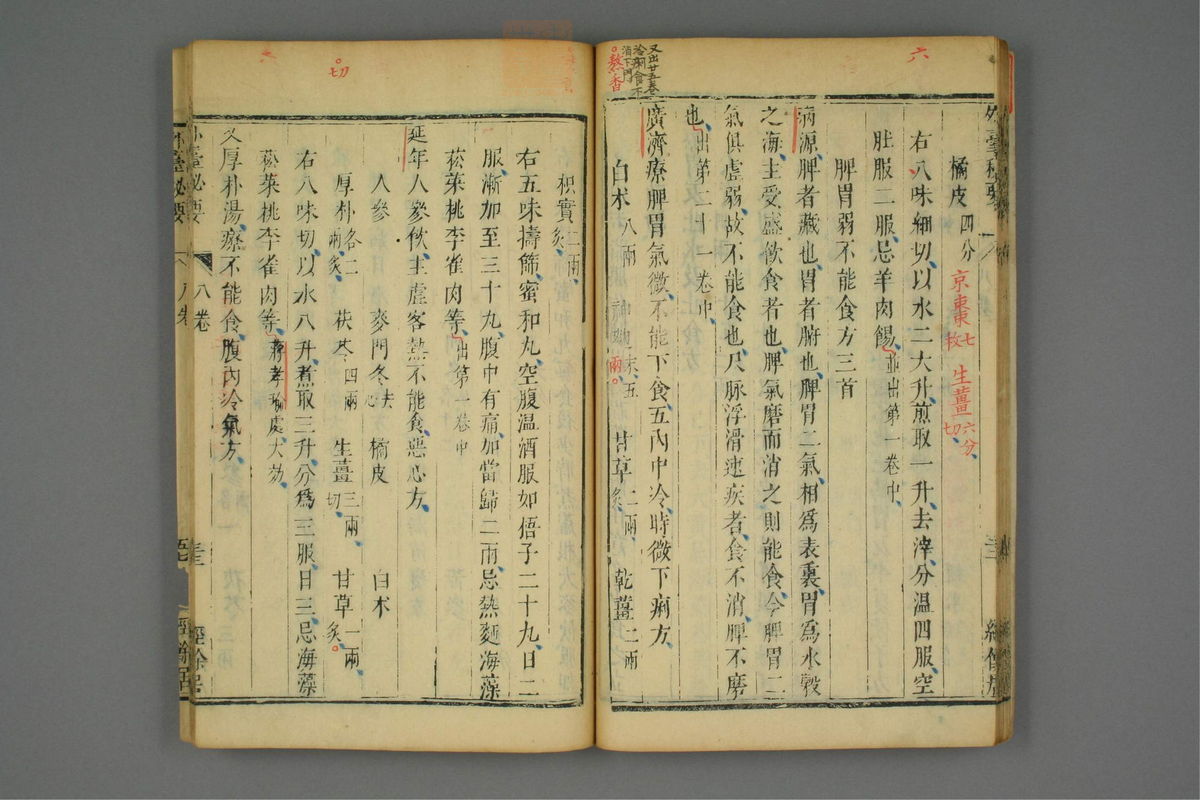 六
外臺秘要
橘皮四分 京棗七枚 生薑六分切
右八味細切以水二大升煎取一升去滓分温四服空
肚服二服忌羊肉餳並出第一卷中
脾胃弱不能食方三首
病源脾者藏也胃者腑也脾胃二氣相爲表裏胃爲水穀
之海主受盛飲食者也脾氣磨而消之則能食今脾胃二
氣俱虛弱故不能食也尺脉浮滑速疾者食不消脾不磨
也出第二十一卷中
廣濟療脾胃氣微不能下食五內中冷時微下痢方
白术八兩 神麴末五兩 甘草二兩炙 乾薑二兩
又出廿五卷
冷痢食不
消下門
熬香
枳實二兩炙
右五味擣篩蜜和丸空腹温酒服如梧子二十九日二
服漸加至三十丸腹中有痛加當歸二兩忌熱麵海藻
菘菜桃李雀肉等出第一卷中
延年人參飲主虛客熱不能食惡心方
人參 麥門冬去心 橘皮 白术
切
厚朴各二兩炙 茯苓四兩 生薑三兩切 甘草一兩炙
右八味切以水八升煮取三升分爲三服日三忌海藻
菘菜桃李雀肉等蔣孝瑜處大効
又厚朴湯療不能食腹內冷氣方
外臺秘要
八卷
經餘居